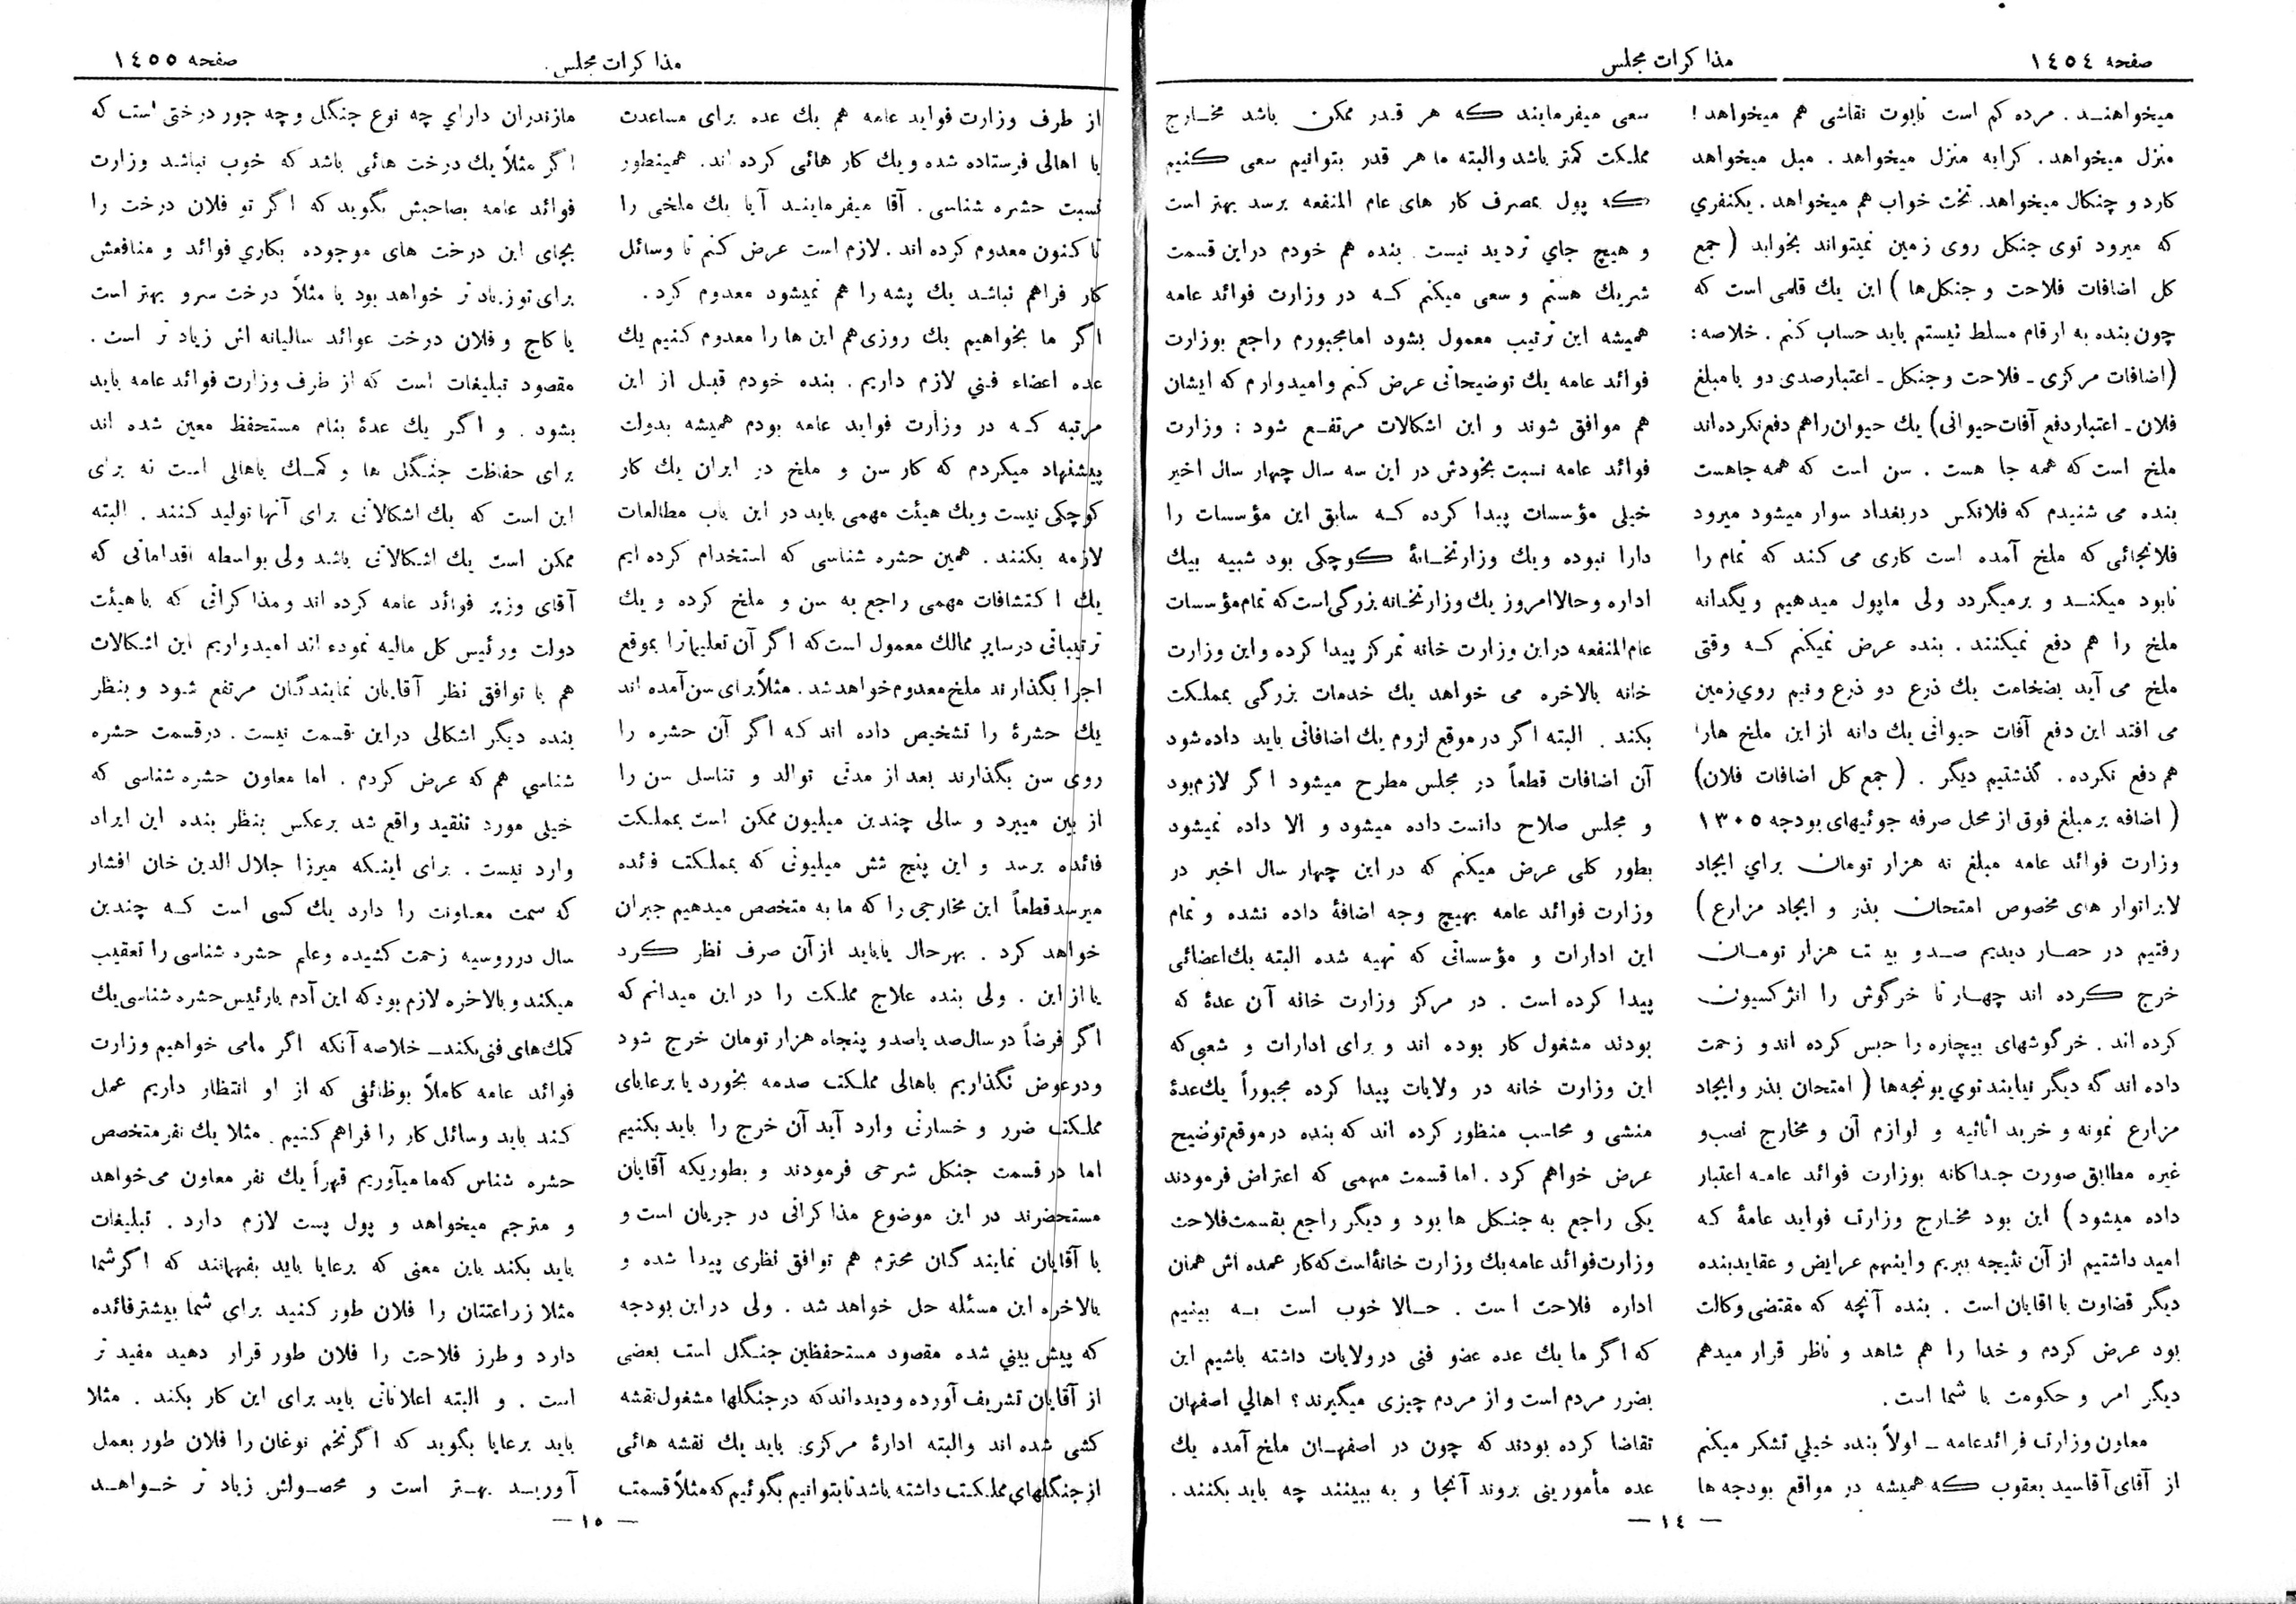 صفحه ١٤٥٤
مذاکرات مجلس
میخواهنـد . مرده کم است تابوت نقاشی هم میخواهد !
منزل میخواهد . کرایه منزل میخواهد . مبل میخواهد
کارد و چنکال میخواهد. تخت خواب هم میخواهد . یکنفري
که میرود توی جنکل روی زمین نمیتواند بخوابد ( جمع
کل اضافات فلاحت و جنکل‌ها ) این یك قلمی است که
چون بنده به ارقام مسلط نیستم باید حساب کنم . خلاصه :
(اضافات مرکزی ـ فلاحت و جنکل ـ اعتبار صدی دو یا مبلغ
فلان ـ اعتبار دفع آفات حیوانی) یك حیوان راهم دفع نکرده‌اند
ملخ است که همه جا هست . سن است که همه جاهست
بنده می شنیدم که فلانکس در بغداد سوار میشود میرود
فلانجائی که ملخ آمده است کاری می کند که تمام را
نابود میکنـد و برمیگردد ولی ماپول میدهیم و یگدانه
ملخ را هم دفع نمیکنند . بنده عرض نمیکنم کـه وقتی
ملخ می آید بضخامت یك ذرع دو ذرع ونیم روي زمین
می افتد این دفع آفات حیوانی یك دانه از این ملخ هارا
هم دفع نکرده . گذشتیم دیگر . ( جمع کل اضافات فلان)
( اضافه بر مبلغ فوق از محل صرفه جوئیهای بودجه ١٣٠٥
وزارت فوائد عامه مبلغ نه هزار تومان براي ایجاد
لابراتوار های مخصوص امتحان بذر و ایجاد مزارع )
رفتیم در حصـار دیدیم صـد و بیست هزار تومـان
خرج کرده اند چهـار تا خرگوش را انژکسیون
کرده اند . خرگوشهای بیچاره را حبس کرده اند و زحمت
داده اند که دیگر نیایند توي یونجه‌ها ( امتحان بذر وایجاد
مزارع نمونه و خرید اثاثیه و لوازم آن و مخارج نصب و
غیره مطابق صورت جـداکانه بوزارت فوائد عامـه اعتبار
داده میشود ) این بود مخـارج وزارت فواید عامۀ کـه
امید داشتیم از آن نتیجه ببریم واینهم عرایض و عقاید بنده
دیگر قضاوت با اقایان است . بنده آنچه که مقتضی وکالت
بود عرض کردم و خدا را هم شاهد و ناظر قرار میدهم
دیگر امر و حکومت با شما است .
معاون وزارت فوائدعامه ـ اولاً بنده خیلي تشکر میکنم
از آقای آقاسید یعقوب که همیشه در مواقع بودجه ها
سعی میفرمایند که هر قـدر ممکن باشد مخـارج
مملکت کمتر باشد والبته ما هر قدر بتوانیم سعی کنیم
که پول بمصرف کار های عام المنفعه برسد بهتر است
و هیچ جاي تردید نیست بنده هم خودم دراین قسمت
شریك هستم و سعی میکنم کـه در وزارت فوائد عامه
همیشه این ترتیب معمول بشود اما مجبورم راجع بوزارت
فوائد عامه یك توضیحاتی عرض کنم وامیدوارم که ایشان
هم موافق شوند و این اشکالات مرتفـع شود : وزارت
فوائد عامه نسبت بخودش در این سه سال چهار سال اخیر
خیلی مؤسسات پیدا کرده کـه سابق این مؤسسات را
دارا نبوده ویك وزارتخـانۀ کوچکی بود شبیه بیك
اداره وحالا امروز یك وزارتخـانه بزرگی‌است‌که تمام‌مؤسسات
عام‌المنفعه دراین وزارت خانه تمرکز پیدا کرده واین وزارت
خانه بالاخره می خواهد یك خدمات بزرگی بمملکت
بکند . البته اگر در موقع لزوم یك اضافاتی باید داده شود
آن اضافات قطعاً در مجلس مطرح میشود اگر لازم‌بود
و مجلس صلاح دانست داده میشود و الا داده نمیشود
بطور کلی عرض میکنم که دراین چهار سال اخیر در
وزارت فوائد عامه بهیچ وجه اضافۀ داده نشده و تمام
این ادارات و مؤسساتی که تهیه شده البته یك‌اعضائی
پیدا کرده است . در مرکز وزارت خانه آن عدۀ که
بودند مشغول کار بوده اند و برای ادارات و شعبی‌که
این وزارت خانه در ولایات پیدا کرده مجبوراً یك‌عدۀ
منشی و محاسب منظور کرده اند که بنده در موقع توضیح
عرض خواهم کرد . اما قسمت مهمی که اعتراض فرمودند
یکی راجع به جنـکل ها بود و دیگر راجع بقسمت‌فلاحت
وزارت‌فوائد عامه‌یك وزارت خانۀ‌است‌که‌کار عمده اش همان
اداره فلاحت است . حـالا خوب است بـه بینیم
که اگر ما یك عده عضو فنی درولایات داشته باشیم این
بضرر مردم است و از مردم چیزی میگیرند؟ اهالي اصفهان
تقاضا کرده بودند که چون در اصفهـان ملخ آمده یك
عده مأمورینی بروند آنجا و به ببینند چه باید بکنند .
ـ ١٤ ـ
صفحه ١٤٥٥
مذاکرات مجلس
از طرف وزارت فواید عامه هم یك عده برای مساعدت
با اهالی فرستاده شده ویك کار هائی کرده اند. همینطور
نسبت حشره شناسی . آقا میفرماینـد آیا یك ملخی را
تا کنون معدوم کرده اند . لازم است عرض کنم تا وسائل
کار فراهم نباشـد یك پشه را هم نمیشود معدوم کرد .
اگر ما بخواهیم یك روزی هم این ها را معدوم کنیم یك
عده اعضاء فني لازم داریم . بنده خودم قبـل از این
مرتبه کـه در وزارت فواید عامه بودم همیشه بدولت
پیشنهاد میکردم که کار سن و ملخ در ایران یك کار
کوچکی نیست ویك هیئت مهمی باید در این باب مطالعات
لازمه بکنند . همین حشره شناسی که استخدام کرده ایم
یك اکتشافات مهمی راجع به سن و ملخ کرده و یك
ترتیباتی درسایر ممالك معمول است‌که اگر آن تعلیمات‌را بموقع
اجرا بگذارند ملخ‌معدوم‌خواهدشد . مثلاً برای سن‌آمده اند
یك حشرۀ را تشخیص داده اند کـه اگر آن حشره را
روی سن بگذارند بعد از مدتی توالد و تناسل سن را
از بین میبرد و سالی چندین میلیون ممکن است بمملکت
فائده برسد و این پنج شش میلیونی که بمملکت فائده
میرسد قطعاً این مخارجی را که ما به متخصص میدهیم جبران
خواهد کرد . بهر حال یاباید از آن صرف نظر کرد
یا از این . ولی بنده علاج مملکت را در این میدانم که
اگر فرضاً در سال‌صد یاصد و پنجاه هزار تومان خرج شود
ودرعوض نگذاریم باهالی مملکت صدمه بخورد یا برعایای
مملکت ضرر و خسارتی وارد آید آن خرج را باید بکنیم
اما در قسمت جنکل شرحی فرمودند و بطوریکه آقایان
مستحضرند در این موضوع مذاکراتی در جریان است و
با آقایان نمایندگان محترم هم توافق نظری پیدا شده و
بالاخره این مسئله حل خواهد شد . ولی در این بودجه
که پیش بیني شده مقصود مستحفظین جنـگل است بعضی
از آقایان تشریف آورده و دیده‌اند که در جنگلها مشغول‌نقشه
کشی شده اند والبته ادارۀ مرکزی باید یك نقشه هائی
از جنگلهاي مملکت داشته باشد تا بتوانیم بگوئیم که مثلاً قسمت
مازندران داراي چه نوع جنگل و چه جور درختی است که
اگر مثلاً یك درخت هائی باشد که خوب نباشد وزارت
فوائد عامه بصاحبش بگوید که اگر تو فلان درخت را
بجای این درخت های موجوده بکاري فوائد و منافعش
برای تو زیادتر خواهد بود یا مثلاً درخت سرو بهتر است
یا کاج و فلان درخت عوائد سالیانه اش زیاد تر است .
مقصود تبلیغات است که از طرف وزارت فوائد عامه باید
بشود . و اگر یك عدۀ بنام مستحفظ معین شده اند
برای حفاظت جنـگل ها و کمـك باهالی است نه برای
این است که یك اشکالاتی برای آنها تولید کنند . البته
ممکن است یك اشـکالاتی باشد ولی بواسطه اقداماتی که
آقای وزیر فوائد عامه کرده اند و مذاکراتی که با هیئت
دولت ورئیس کل مالیه نموده اند امیدواریم این اشکالات
هم با توافق نظر آقایان نمایندگان مرتفع شود و بنظر
بنده دیگر اشکالی دراین قسمت نیست . درقسمت حشره
شناسي هم که عرض کردم . اما معاون حشره شناسی که
خیلی مورد تنقید واقع شد برعکس بنظر بنده این ایراد
وارد نیست . برای اینـکه میرزا جلال الدین خان افشار
که سمت معـاونت را دارد یك کسی است کـه چندین
سال درروسیه زحمت کشیده وعلم حشره شناسی را تعقیب
میکند و بالاخره لازم بود که این آدم با رئیس حشره شناسی یك
کمك‌های فنی بکند ـ خلاصه آنکه اگر مامی خواهیم وزارت
فوائد عامه کاملاً بوظائفی که از او انتظار داریم عمل
کند باید وسائل کار را فراهم کنیم . مثلا یك نفر متخصص
حشره شناس که‌ما میآوریم قهراً یك نفر معاون می‌خواهد
و مترجم میخواهد و پول پست لازم دارد . تبلیغات
باید بکند باین معنی که برعایا باید بفهمانند که اگر شما
مثلا زراعتتان را فلان طور کنید براي شما بیشتر فائده
دارد و طرز فلاحت را فلان طور قرار دهید مفید تر
است . و البته اعلاناتی باید برای این کار بکند . مثلا
باید برعایا بگوید که اگر تخم نوغان را فلان طور بعمل
آوریـد بهـتر است و محصـولش زیاد تر خـواهـد
ـ ١٥ ـ